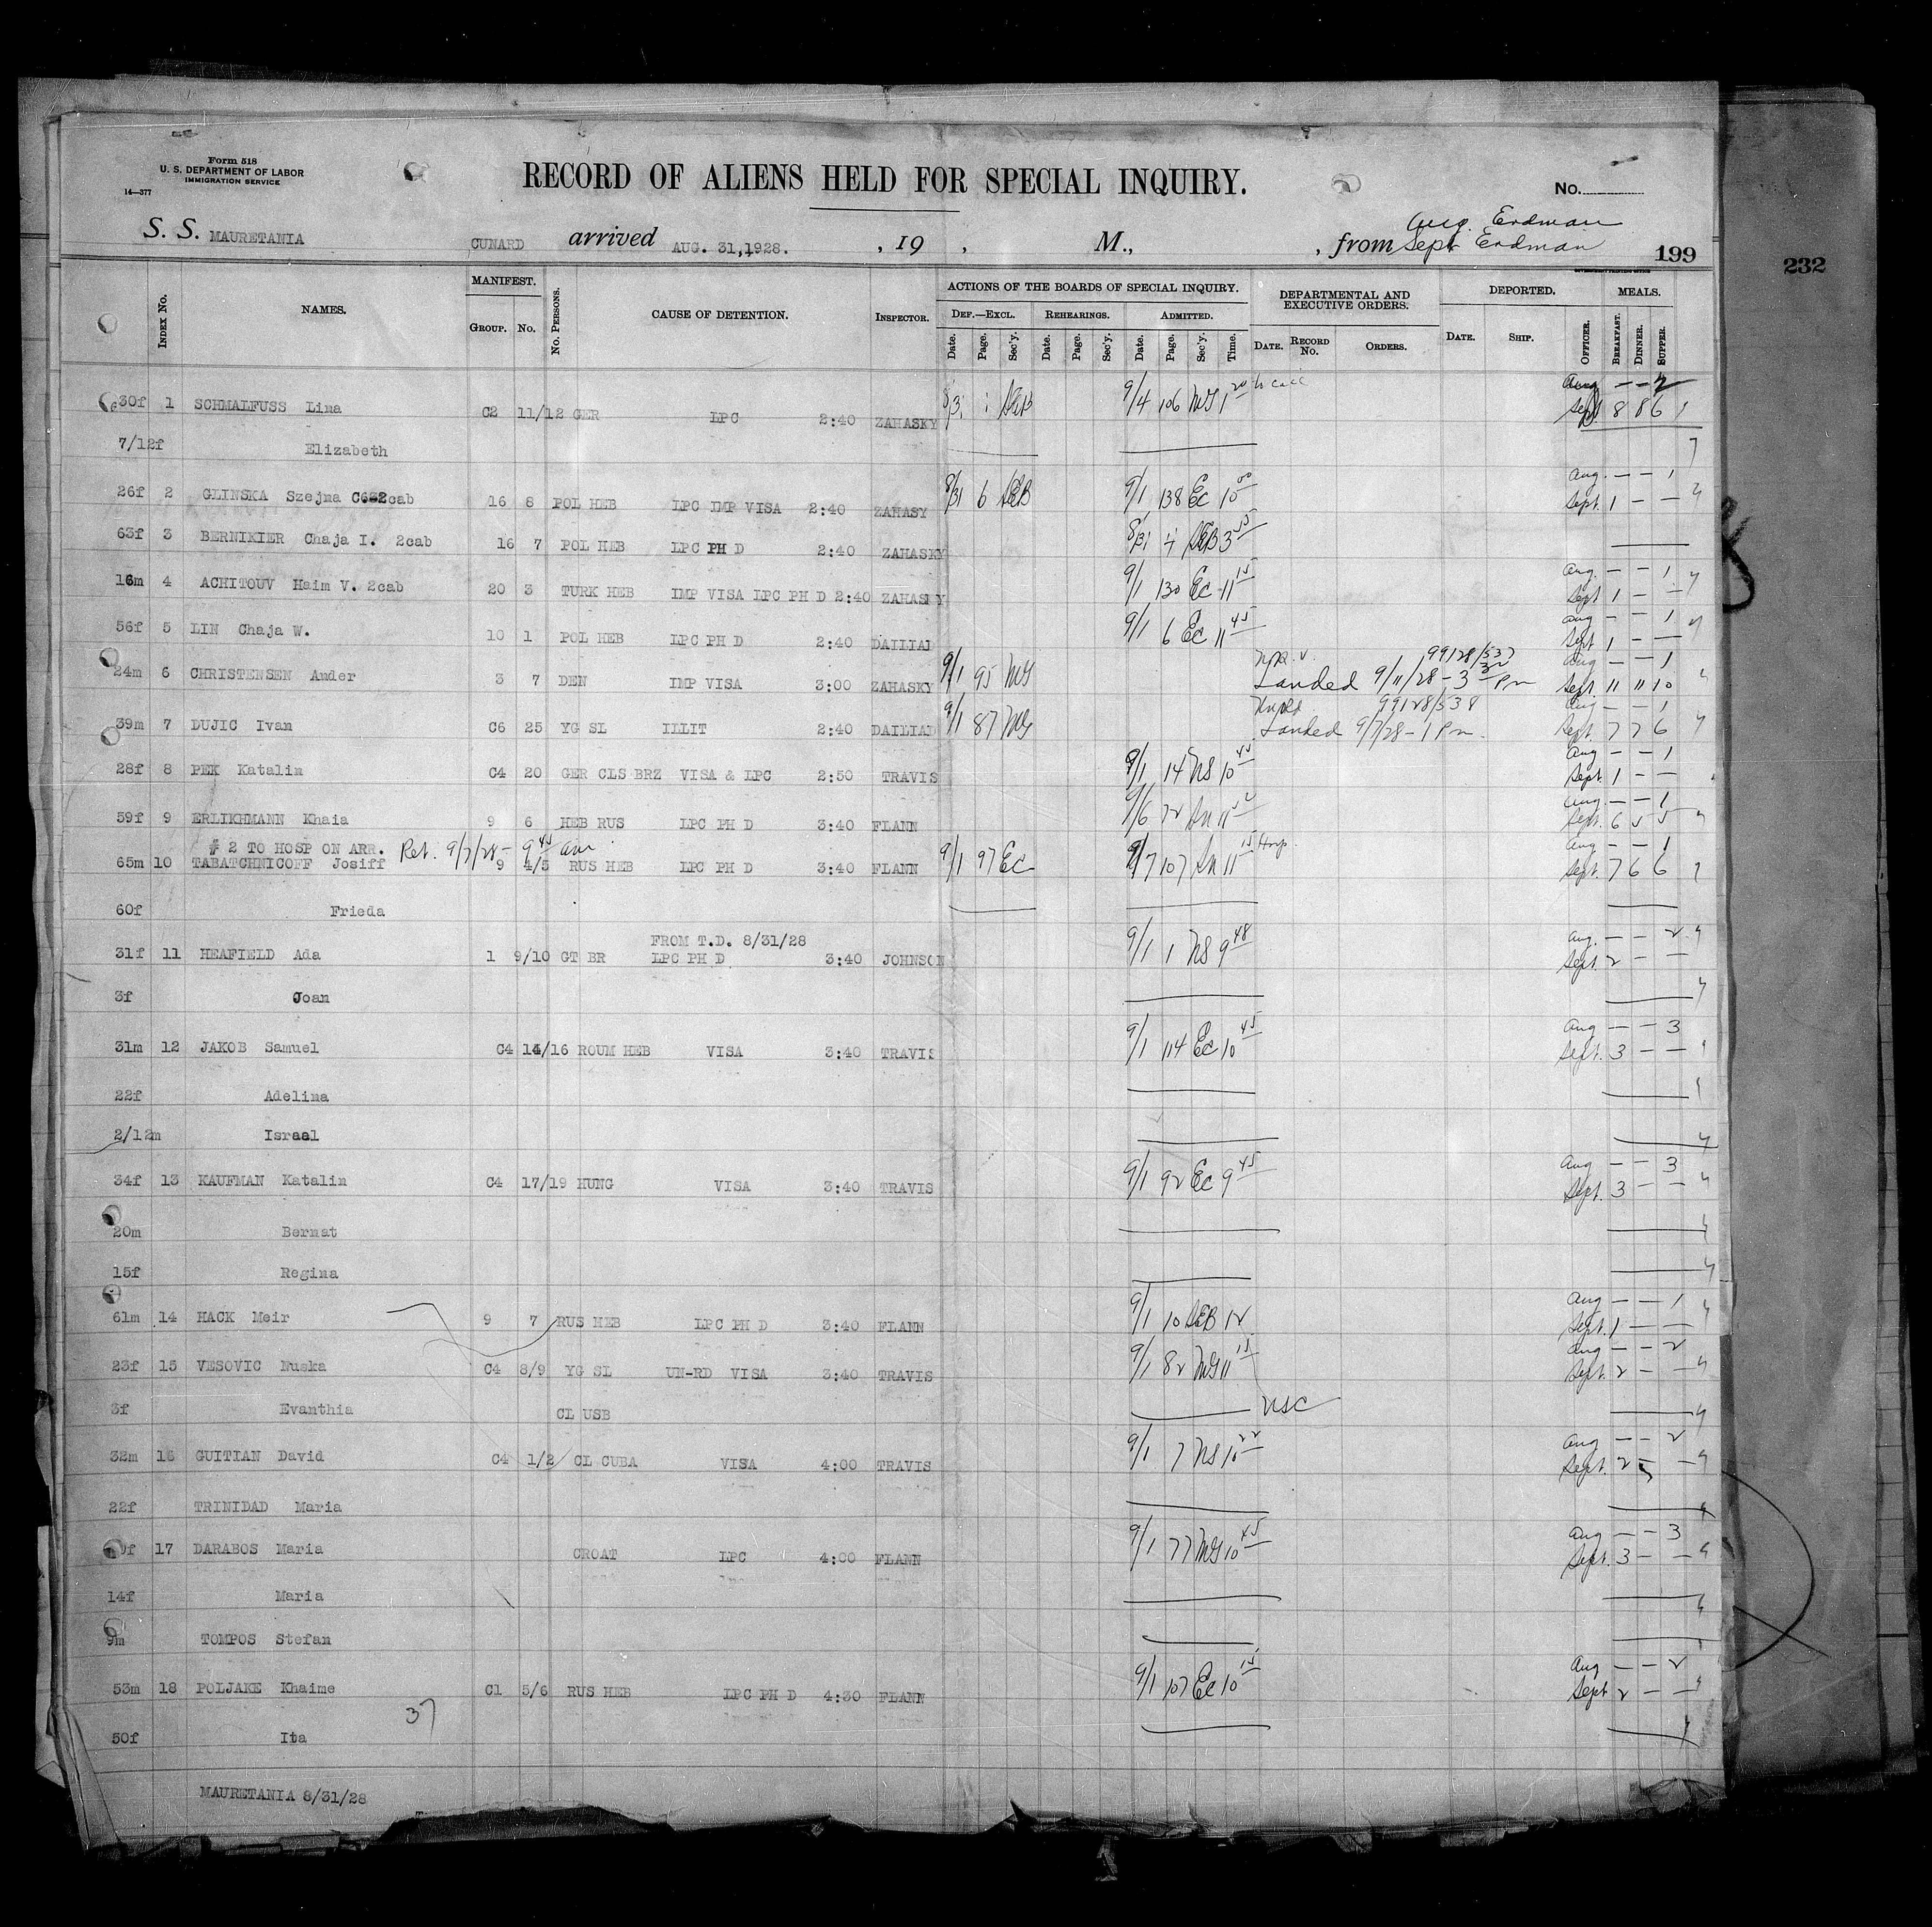 Form 518
U. S. DEPARTMENT OF LABOR
IMMIGRATION SERVICE
14—377
RECORD OF ALIENS HELD FOR SPECIAL INQUIRY.
No.
Aug. Erdman
S. S. MAURETANIA CUNARD arrived AUG. 31,1928. , 19 , M., , from Sept Erdman 199
232
Index No. NAMES. MANIFEST. Group. No. No. Persons. CAUSE OF DETENTION. Inspector. ACTIONS OF THE BOARDS OF SPECIAL INQUIRY. Def.—Excl. Date. Page. Sec'y. Rehearings. Date. Page. Sec'y. Admitted. Date. Page. Sec'y. Time. DEPARTMENTAL AND EXECUTIVE ORDERS. Date. Record No. Orders. DEPORTED. Date. Ship. Officer. MEALS. Breakfast. Dinner. Supper.
30f 1 SCHMALFUSS Lina C2 11/12 GER LPC 2:40 ZAHASKY 8/31 1 SEB 9/4 106 MG 1 20 Aug — — 2
Sept 8 8 6
7/12f Elizabeth
26f 2 GLINSKA Szejma C6-2cab 16 8 POL HEB LPC IMP VISA 2:40 ZAHASY 8/31 6 SEB 9/1 138 EC 10 00 Aug. — — 1
Sept. 1 — —
63f 3 BERNIKIER Chaja I. 2cab 16 7 POL HEB LPC PH D 2:40 ZAHASKY 8/31 4 SEB 3 55
16m 4 ACHITOUV Haim V. 2cab 20 3 TURK HEB IMP VISA LPC PH D 2:40 ZAHASKY 9/1 130 EC 11 15 Aug. — — 1
Sept 1 — —
56f 5 LIN Chaja W. 10 1 POL HEB LPC PH D 2:40 DAILIAD 9/1 6 EC 11 45 Aug — — 1
Sept 1 — —
24m 6 CHRISTENSEN Ander 3 7 DEN IMP VISA 3:00 ZAHASKY 9/1 95 MG 99128/537 Aug — — 1
Landed 9/11/28 - 3 30 Pm Sept. 11 11 10
39m 7 DUJIC Ivan C6 25 YG SL ILLIT 2:40 DAILIAD 9/1 87 MG 99128/538 Aug — — 1
Landed 9/7/28 - 1 Pm. Sept. 7 7 6
28f 8 PEK Katalin C4 20 GER CLS BRZ VISA & LPC 2:50 TRAVIS 9/1 14 NS 10 45 Aug — — 1
Sept. 1 — —
59f 9 ERLIKHMANN Khaia 9 6 HEB RUS LPC PH D 3:40 FLANN 9/6 72 11 Aug — — 1
Sept. 6 5 5
# 2 TO HOSP ON ARR. Ret. 9/7/28 - 9 45 am
65m 10 TABATCHNICOFF Josiff 9 4/5 RUS HEB LPC PH D 3:40 FLANN 9/1 97 EC 9/7 107 11 15 Hosp. Aug — — 1
Sept. 7 6 6
60f Frieda
FROM T.D. 8/31/28
31f 11 HEAFIELD Ada 1 9/10 GT BR LPC PH D 3:40 JOHNSON 9/1 1 NS 9 48 Aug. — — 2
Sept. 2 — —
3f Joan
31m 12 JAKOB Samuel C4 14/16 ROUM HEB VISA 3:40 TRAVIS 9/1 114 EC 10 45 Aug — — 3
Sept. 3 — —
22f Adelina
2/12m Israel
34f 13 KAUFMAN Katalin C4 17/19 HUNG VISA 3:40 TRAVIS 9/1 92 EC 9 45 Aug — — 3
Sept. 3 — —
20m Bernat
15f Regina
61m 14 HACK Meir 9 7 RUS HEB LPC PH D 3:40 FLANN 9/1 10 SEB 12 Aug — — 1
Sept. 1 — —
23f 15 VESOVIC Nuska C4 8/9 YG SL UN-RD VISA 3:40 TRAVIS 9/1 82 MG 11 15 Aug — — 2
Sept. 2 — —
3f Evanthia CL USB USC
32m 16 GUITIAN David C4 1/2 CL CUBA VISA 4:00 TRAVIS 9/1 7 NS 10 22 Aug — — 2
Sept. 2 — —
22f TRINIDAD Maria
17 DARABOS Maria CROAT LPC 4:00 FLANN 9/1 77 MG 10 45 Aug — — 3
Sept. 3 — —
14f Maria
9m TOMPOS Stefan
53m 18 POLJAKE Khaime C1 5/6 RUS HEB LPC PH D 4:30 FLANN 9/1 107 EC 10 15 Aug — — 2
Sept 2 — —
37
50f Ita
MAURETANIA 8/31/28